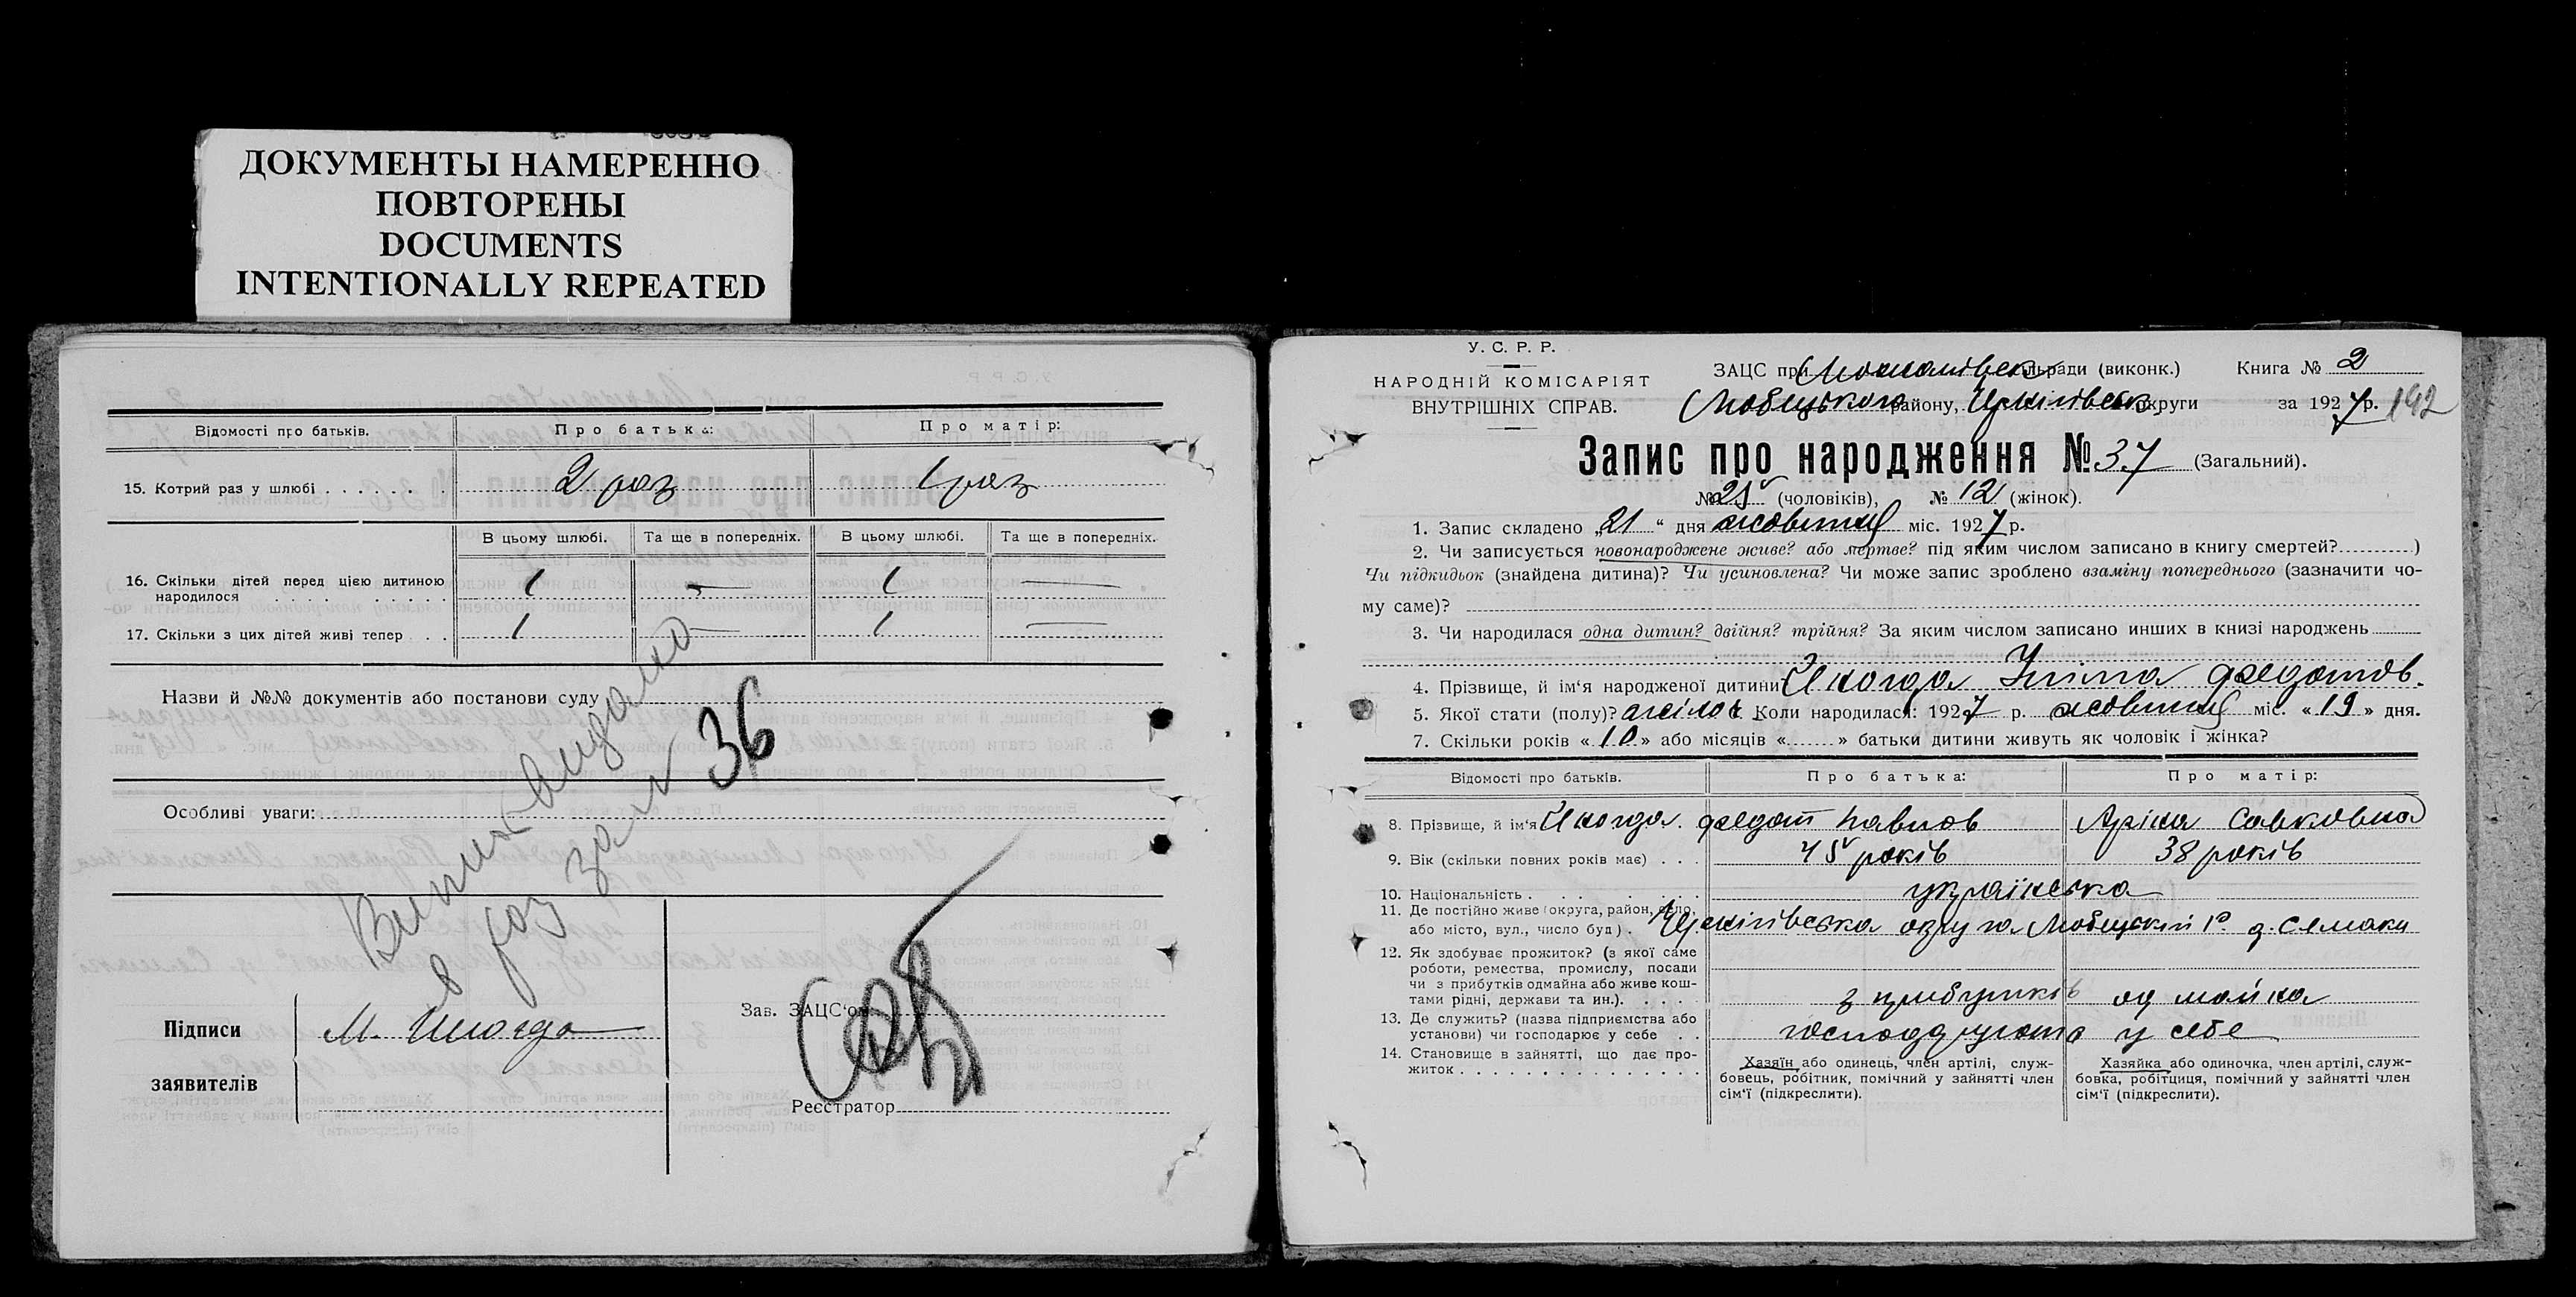 ДОКУМЕНТЫ НАМЕРЕННО
ПОВТОРЕНЫ
DOCUMENTS
INTENTIONALLY REPEATED
Відомості про батьків. Про батька: Про матір:
15. Котрий раз у шлюбі . . . . . . . 2 раз 1 раз
В цьому шлюбі. Та ще в попередніх. В цьому шлюбі. Та ще в попередніх.
16. Скільки дітей перед цією дитиною
народилося . . . . . . . . . 1 — 1 —
17. Скільки з цих дітей живі тепер . . . 1 — 1 —
Назви й №№ документів або постанови суду
Особливі уваги:
Виписку видано
в раз за № 36
Зав. ЗАЦС'ом
Підписи
заявителів
М.
Реєстратор
У. С. Р. Р.
НАРОДНІЙ КОМІСАРІЯТ
ВНУТРІШНІХ СПРАВ.
ЗАЦС при сільради (виконк.) Книга № 2
Любецького району, Чернігівськ округи за 1927 р. 192
Запис про народження № 37 (Загальний).
№ 25 (чоловіків), № 12 (жінок).
1. Запис складено „21“ дня жовтня міс. 1927 р.
2. Чи записується новонароджене живе? або мертве? під яким числом записано в книгу смертей?..........)
Чи підкидьок (знайдена дитина)? Чи усиновлена? Чи може запис зроблено взаміну попереднього (зазначити чо-
му саме)?
3. Чи народилася одна дитин? двійня? трійня? За яким числом записано инших в книзі народжень
4. Прізвище, й ім'я народженої дитини Федотов.
5. Якої стати (полу)? жіноч. Коли народилася: 1927 р. жовтня міс. «19» дня.
7. Скільки років «10» або місяців «......» батьки дитини живуть як чоловік і жінка?
Відомості про батьків. Про батька: Про матір:
8. Прізвище, й ім'я Федот Павлов Аріна Савковна
9. Вік (скільки повних років має) . . . 45 років 38 років
10. Національність . . . . . . українська
11. Де постійно живе (округа, район, село,
або місто, вул., число буд) . Чернігівська округа Любецький р. д. Семаки
12. Як здобуває прожиток? (з якої саме
роботи, ремества, промислу, посади
чи з прибутків одмайна або живе кош-
тами рідні, держави та ин.). . . . . з прибутків од майна
13. Де служить? (назва підприємства або
установи) чи господарює у себе . . у себе
14. Становище в зайнятті, що дає про-
житок . . . . . . . . . . . . . . .
Хазяїн або одинець, член артілі, служ-
бовець, робітник, помічний у зайнятті член
сім'ї (підкреслити).
Хазяйка або одиночка, член артілі, служ-
бовка, робітниця, помічний у зайнятті член
сім'ї (підкреслити).